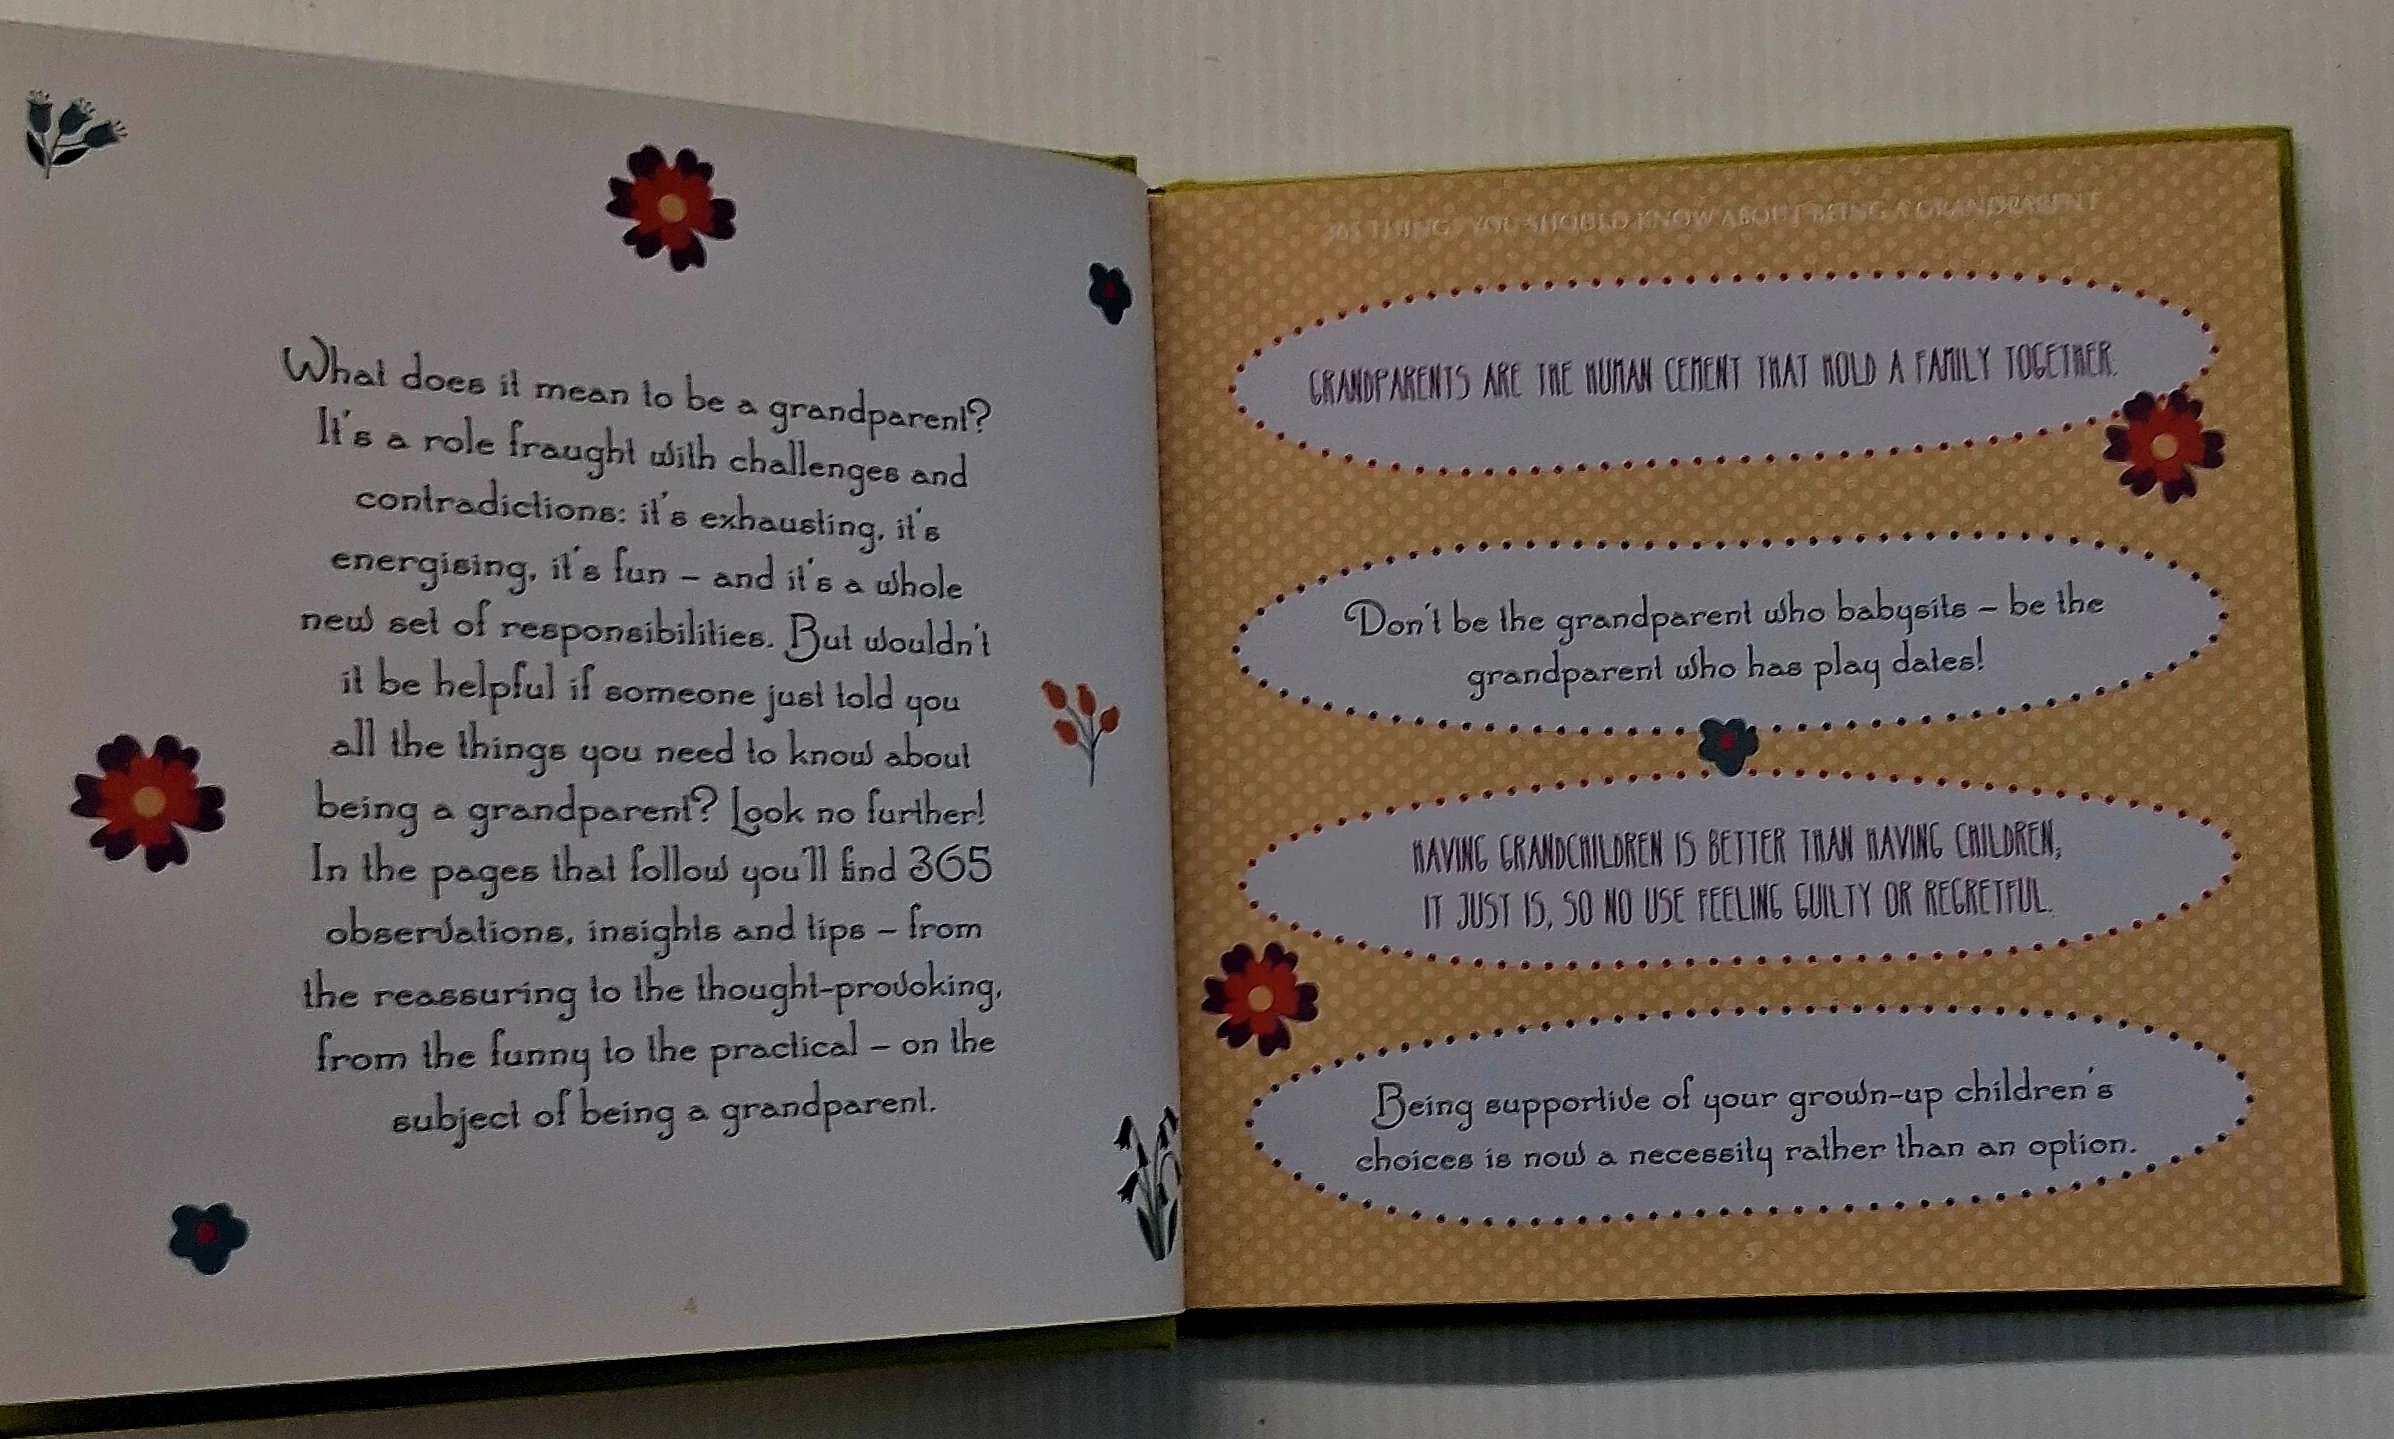 What does it mean to be a grandparent?
It's a role fraught with challenges and
contradictions: it's exhausting, it's
energising, it's fun – and it's a whole
new set of responsibilities. But wouldn't
it be helpful if someone just told you
all the things you need to know about
being a grandparent? Look no further!
In the pages that follow you'll find 365
observations, insights and tips – from
the reassuring to the thought-provoking,
from the funny to the practical – on the
subject of being a grandparent.
4
365 THINGS YOU SHOULD KNOW ABOUT BEING A GRANDPARENT
GRANDPARENTS ARE THE HUMAN CEMENT THAT HOLD A FAMILY TOGETHER.
Don't be the grandparent who babysits – be the
grandparent who has play dates!
HAVING GRANDCHILDREN IS BETTER THAN HAVING CHILDREN,
IT JUST IS, SO NO USE FEELING GUILTY OR REGRETFUL.
Being supportive of your grown-up children's
choices is now a necessity rather than an option.
5